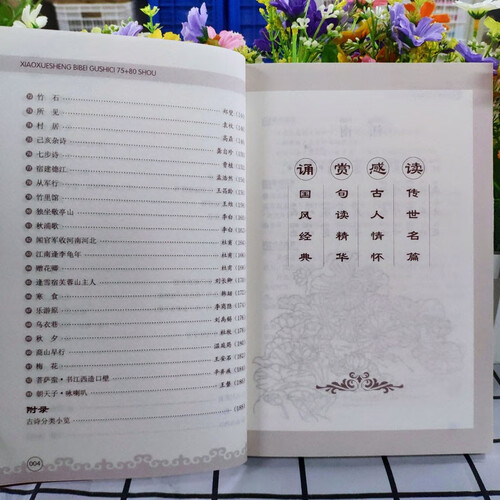 XIAOXUESHENG BIBEI GUSHICI 75+80 SHOU
竹 石 郑燮
所 见 袁枚
村 居 高鼎
己亥杂诗 龚自珍
七步诗 曹植
宿建德江 孟浩然
从军行 王昌龄
竹里馆 王维
独坐敬亭山 李白
秋浦歌 李白
闻官军收河南河北 杜甫
江南逢李龟年 杜甫
赠花卿 杜甫
逢雪宿芙蓉山主人 刘长卿
寒 食 韩翃
乐游原 李商隐
乌衣巷 刘禹锡
秋 夕 杜牧
商山早行 温庭筠
梅 花 王安石
菩萨蛮·书江西造口壁 辛弃疾
朝天子·咏喇叭 王磐
附录
古诗分类小览
004
读传世名篇
感古人情怀
赏句读精华
诵国风经典